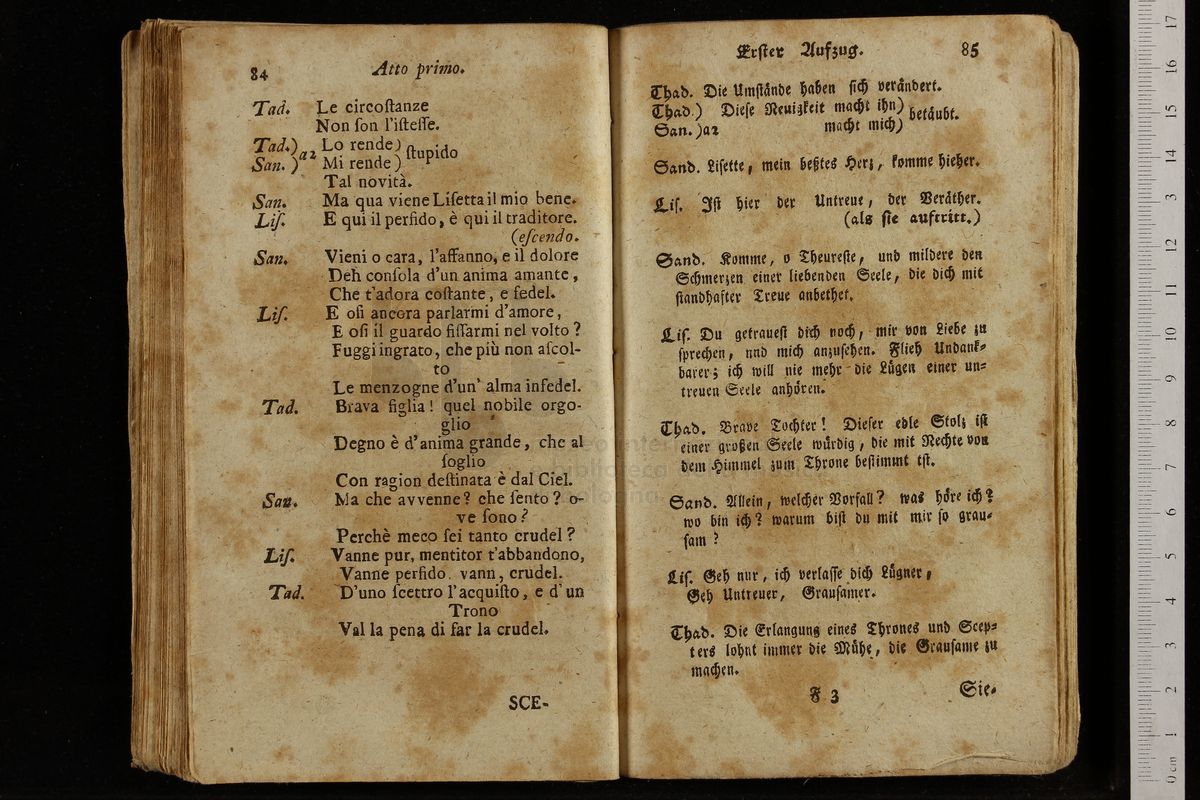 84
Atto primo.
Tad. Le circoſtanze
Non ſon l'iſteſſe.
Tad.) Lo rende)
a2 ſtupido
San. ) Mi rende )
Tal novità.
San. Ma qua viene Liſetta il mio bene.
Liſ. E qui il perfido, è qui il traditore.
(eſcendo.
San. Vieni o cara, l'affanno, e il dolore
Deh conſola d'un anima amante,
Che t'adora coſtante, e fedel.
Liſ. E oſi ancora parlarmi d'amore,
E oſi il guardo fiſſarmi nel volto?
Fuggi ingrato, che più non aſcol-
to
Le menzogne d'un' alma infedel.
Tad. Brava figlia! quel nobile orgo-
glio
Degno è d'anima grande, che al
ſoglio
Con ragion deſtinata è dal Ciel.
San. Ma che avvenne? che ſento? o-
ve ſono?
Perchè meco ſei tanto crudel?
Liſ. Vanne pur, mentitor t'abbandono,
Vanne perfido. vann, crudel.
Tad. D'uno ſcettro l'acquiſto, e d'un
Trono
Val la pena di far la crudel.
SCE-
Erſter Aufzug.
85
Thad. Die Umſtände haben ſich verändert.
Thad.) Dieſe Neuigkeit macht ihn)
betäubt.
San. )a2 macht mich)
Sand. Liſette, mein beßtes Herz, komme hieher.
Liſ. Iſt hier der Untreue, der Veräther.
(als ſie auftritt.)
Sand. Komme, o Theureſte, und mildere den
Schmerzen einer liebenden Seele, die dich mit
ſtandhafter Treue anbethet.
Liſ. Du getraueſt dich noch, mir von Liebe zu
ſprechen, und mich anzuſehen. Flieh Undank-
barer; ich will nie mehr die Lügen einer un-
treuen Seele anhören.
Thad. Brave Tochter! Dieſer edle Stolz iſt
einer großen Seele würdig, die mit Rechte von
dem Himmel zum Throne beſtimmt iſt.
Sand. Allein, welcher Vorfall? was höre ich?
wo bin ich? warum biſt du mit mir ſo grau-
ſam?
Liſ. Geh nur, ich verlaſſe dich Lügner,
Geh Untreuer, Grauſamer.
Thad. Die Erlangung eines Thrones und Scep-
ters lohnt immer die Mühe, die Grauſame zu
machen.
F 3
Sie-
17
16
15
14
13
12
11
10
9
8
7
6
5
4
3
2
1
0 cm